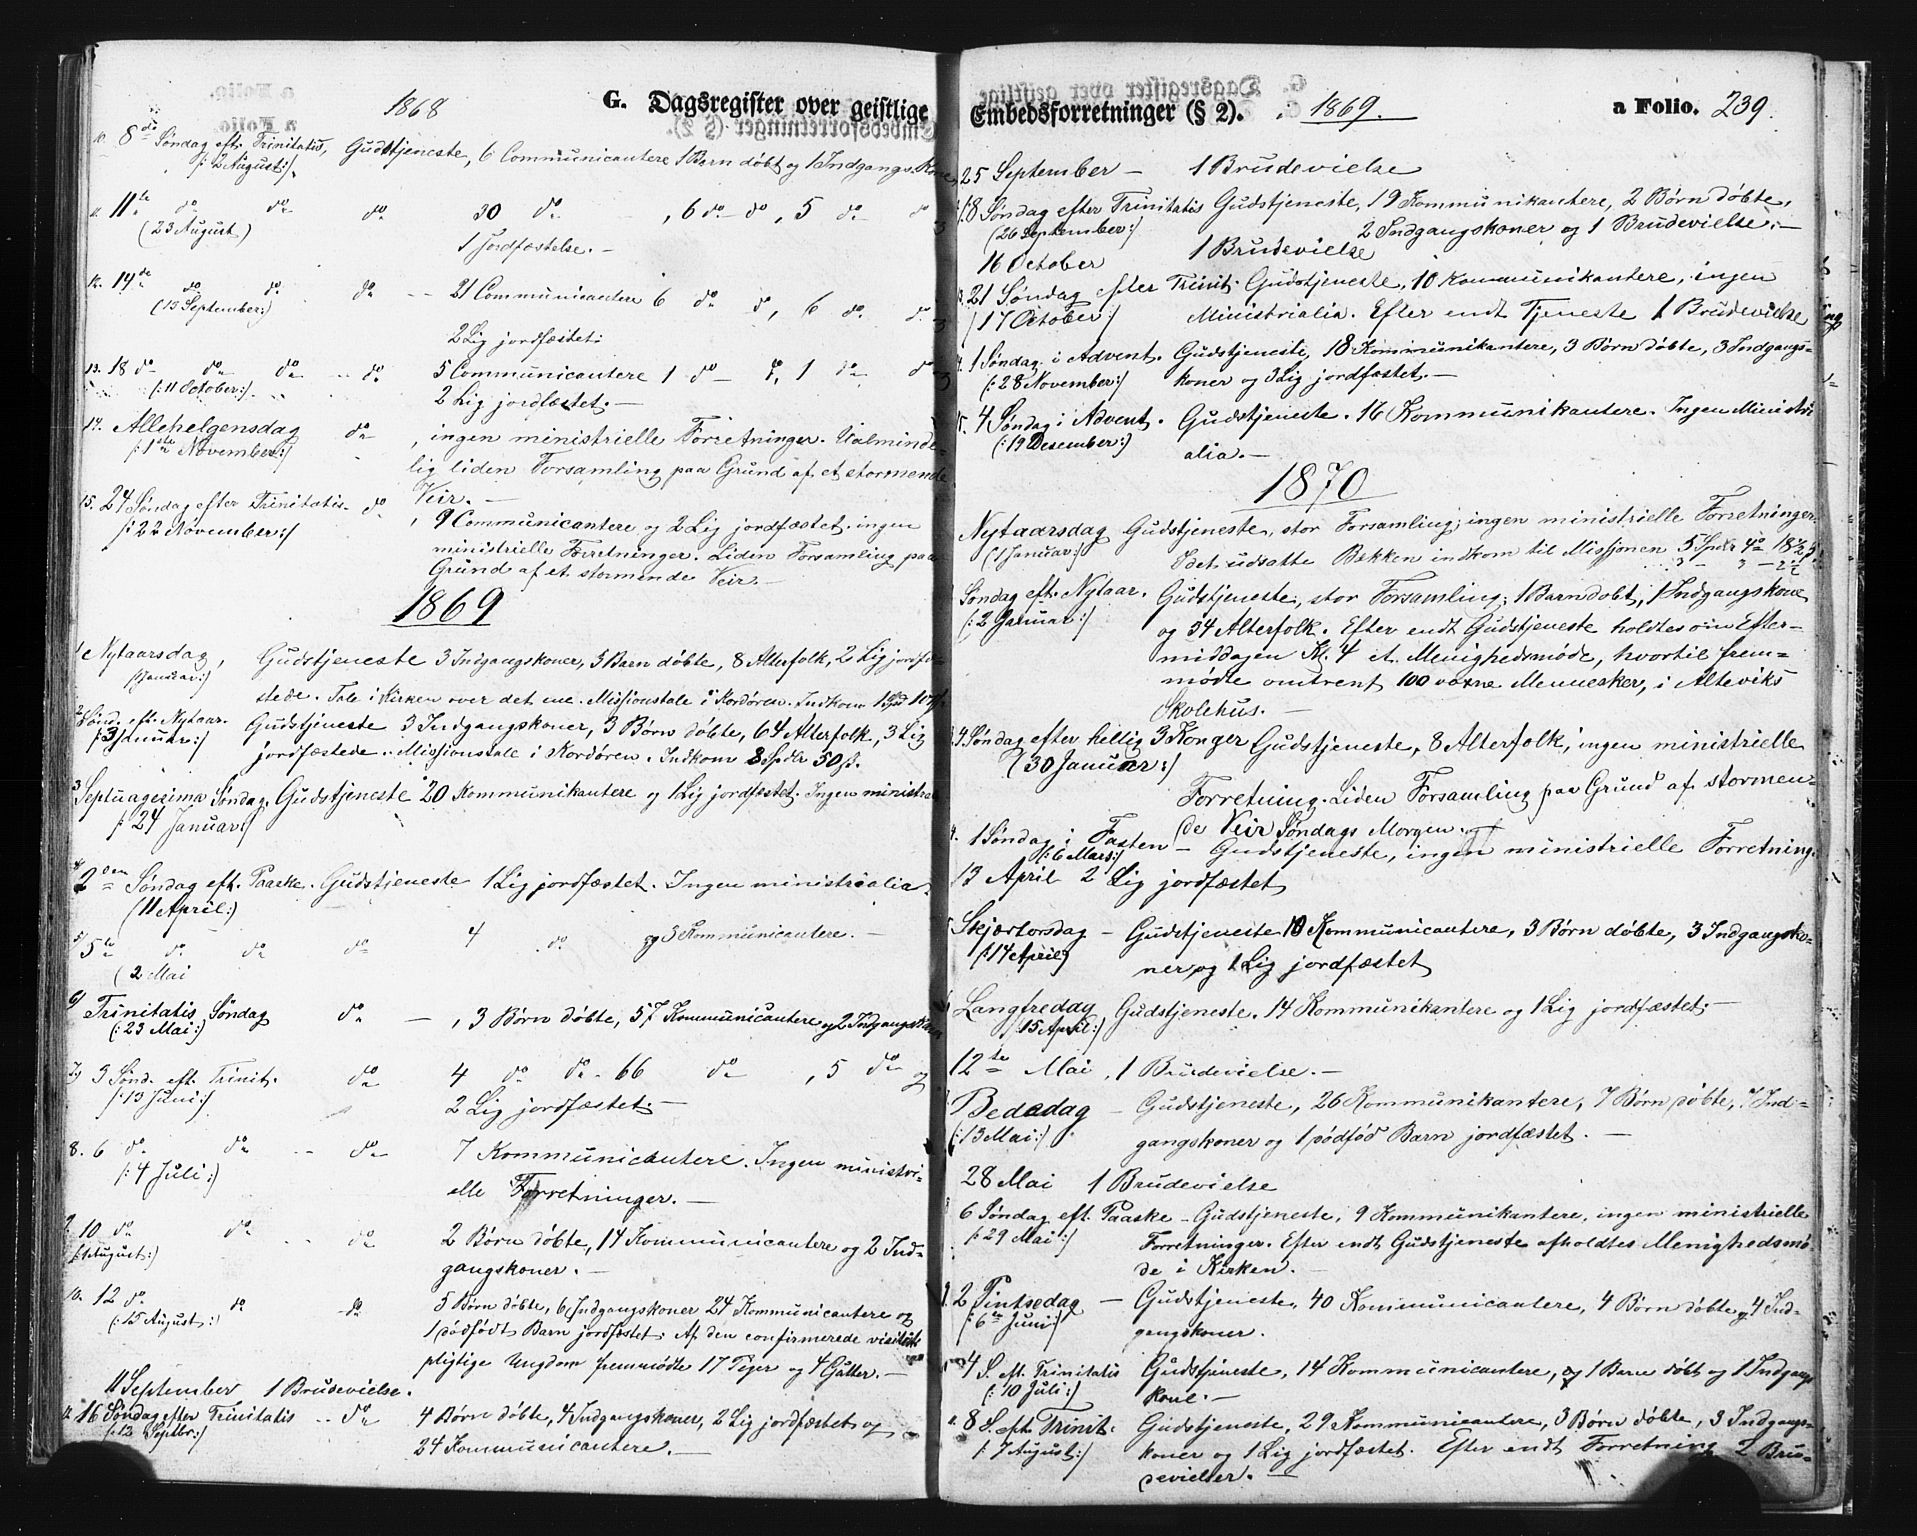 1868
G. Dagsregister over geistlige
10. 8de Søndag eft. Trinitatis, Gudstjeneste, 6 Communicantere 1 Barn døbt og 1 Indgangs-Kone
/: 2 August:/
11. 11te do do do 30 do , 6 do do , 5 do do
(23 August)
1 Jordfæstelse. —
12. 14de do do do 21 Communicantere 6 do d, 6 do d
(13 September:)
2 Lig jordfæstet:
13. 18 do do do do 5 Communicantere 1 do , 1 do
/: 11 October:/
2 Lig jordfæstet. —
14. Allehelgensdag do , ingen ministrielle Forretninger. Ualminde-
/: 1ste November:/
lig liden Forsamling paa Grund af et stormende
Veir. —
15. 24 Søndag efter Trinitatis do , 9 Communicantere og 2 Lig jordfæstet. ingen
/: 22 November:/
ministrielle Forretninger. Liden Forsamling paa
Grund af et stormende Veir. —
1869
1 Nytaarsdag, Gudstjeneste 3 Indgangskoner, 3 Barn døbte, 8 Alterfolk, 2 Lig jordfæ-
(1 Januar:)
stede. Tale i Kirken over det me. Missionstale i Nordören. Indkom 1 Spd
2 Sønd. eft. Nytaar. Gudstjeneste 3 Indgangskoner, 3 Børn døbte, 64 Alterfolk, 3 Lig
/: 3 Januar:/
jordfæstede. Missionstale i Nordören. Indkom 8 Spdlr 50 ß.
3 Septuagesima Søndag, Gudstjeneste 20 Kommunikantere og 1 Lig jordfæstet. Ingen ministrial
/: 24 Januar:/
4/ 2den Søndag eft. Paaske. Gudstjeneste 1 Lig jordfæstet. Ingen ministrialia.
(11 April:)
5/ 5te do do do 4 do og 3 Kommunicantere. —
(2 Mai
6/ Trinitatis Søndag do — , 3 Børn døbte, 57 Kommunicantere og 2 Indgangskoner
(: 23 Mai:)
7.) 3 Sønd. eft. Trinit. do 4 do do - 66 do , 5 do og
/: 13 Juni:/
2 Lig jordfæstet. —
8. 6 do do do 7 Kommunicantere. Ingen ministri-
/: 4 Juli:)
elle Forretninger. —
9. 10 do do do 2 Børn døbte, 14 Kommunicantere og 2 Ind-
/: 1 August:)
gangskoner. —
10. 12 do do do 5 Børn døbte, 6 Indgangskoner 24 Kommunicantere og
(: 15 August:)
1 dødfødt Barn jordfæstet: Af den confirmerede
pligtige Ungdom fremmødte 17 Piger og 4 Gutter. —
11 September 1 Brudevielse.
11. 16 Søndag efter Trinitatis do 4 Børn døbte, 4 Indgangskoner, 2 Lig jordfæstet og
/: 12 Septbr:/
24 Kommunicantere. —
Embedsforretninger (§ 2). 1869. a Folio. 239.
25 September — 1 Brudevielse
18 Søndag efter Trinitatis Gudstjeneste, 19 Kommunikantere, 2 Børn døbte,
(26 September:/
2 Indgangskoner og 1 Brudevielse. —
16 October 1 Brudevielse
21 Søndag efter Trinit. Gudstjeneste, 10 Kommunikantere, ingen
/ 17 October:/
Ministrialia. Efter endt Tjeneste 1 Brudevielse
1 Søndag i Advent. Gudstjeneste, 18 Kommunikantere, 3 Børn døbte, 3 Indgangs-
(: 28 November:/
koner og 3 Lig jordfæstet. —
4 Søndag i Advent. Gudstjeneste. 16 Kommunikantere. Ingen Ministri
(: 19 Desember:)
alia. —
1870
Nytaarsdag Gudstjeneste, stor Forsamling; ingen ministrielle Forretninger
(1 Januar:)
I det udsatte Bekken indkom til Missionen 5 Spdr
Søndag eft. Nytaar. Gudstjeneste, stor Forsamling; 1 Barn dobt, 1 Indgangskone
(: 2 Januar:/
og 54 Alterfolk. Efter endt Gudstjeneste holdtes om Efter-
middagen Kl. 4 et Menighedsmøde, hvortil frem-
mødte omtrent 100 voxne Mennesker, i Alteviks
Skolehus. —
4 Søndag efter hellig 3 Konger Gudstjeneste, 8 Alterfolk, ingen ministrielle
/ 30 Januar:/
Forretning. Liden Forsamling paa Grund af stormen-
de Veir Søndags Morgen.
1 Søndag i Fasten — Gudstjeneste, ingen ministrielle Forretning.
/: 6 Mars:/
13 April 2 Lig jordfæstet
Skjærtorsdag — Gudstjeneste 10 Kommunicantere, 3 Børn døbte, 3 Indgangsko-
/: 14 April
ner og 1 Lig jordfæstet
Langfredag Gudstjeneste. 14 Kommunikantere og 1 Lig jordfæstet. —
/ 15 April:/
12te Mai, 1 Brudevielse. —
Bededag — Gudstjeneste, 26 Kommunikantere, 7 Børn døbte, 7 Ind-
(: 13 Mai:/
gangskoner og 1 dødfød Barn jordfæstet. —
28 Mai 1 Brudevielse
6 Søndag eft. Paaske — Gudstjeneste, 9 Kommunikantere, ingen ministrielle
/: 29 Mai:/
Forretninger. Efter endt Gudstjeneste afholdtes Menighedsmø-
de i Kirken. —
2 Pintsedag — Gudstjeneste, 40 Kommunicantere, 4 Børn døbte og 4 Ind-
/: 6te Juni:/
gangskoner.
4 S. eft. Trinitatis Gudstjeneste, 14 Kommunicantere, og 1 Barn døbt og 1 Indgangs
(: 10 Juli:/
kone. —
8 S. eft. Trinit. Gudstjeneste, 29 Kommunicantere, 3 Børn døbte, 3 Indgangs-
/: 7 August:/
koner og 1 Lig jordfæstet. Efter endt Forretning 2 Bru-
devielser. —